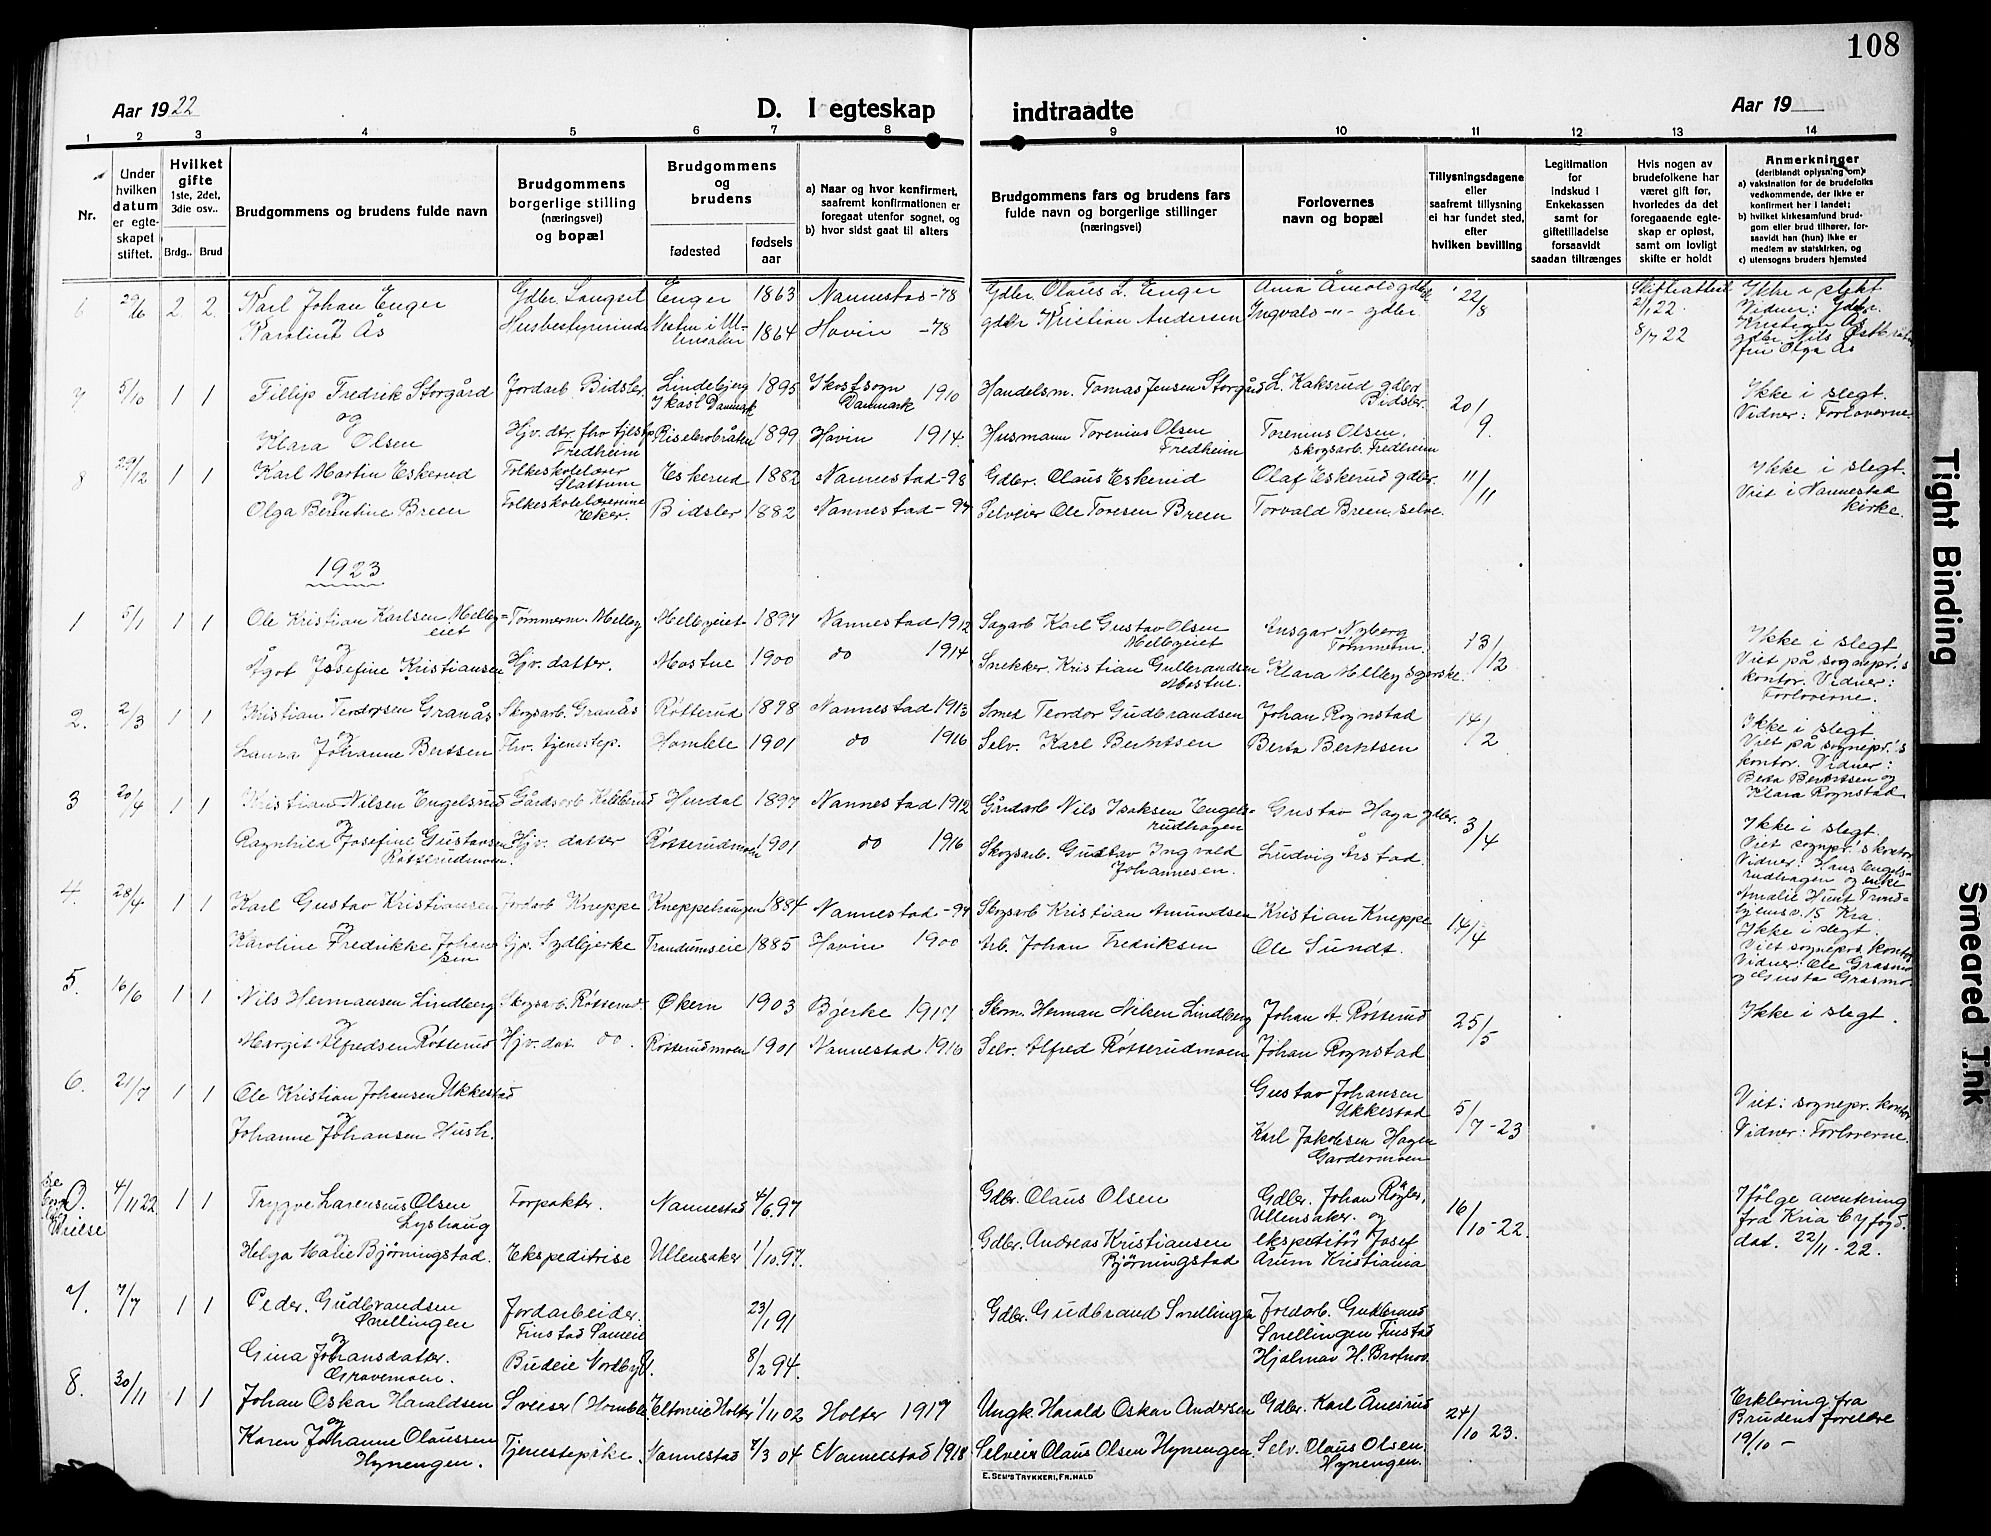 108
Aar 1922
D. I egteskap indtraadte
Aar 19
1 2 3 4 5 6 7 8 9 10 11 12 13 14
Nr.
Under hvilken datum er egteskapet stiftet.
Hvilket gifte 1ste, 2det, 3die osv..
Brdg.. Brud
Brudgommens og brudens fulde navn
Brudgommens borgerlige stilling (næringsvei) og bopæl
Brudgommens og brudens
fødested
fødsels aar
a) Naar og hvor konfirmert, saafremt konfirmationen er foregaat utenfor sognet, og
b) hvor sidst gaat til alters
Brudgommens fars og brudens fars fulde navn og borgerlige stillinger (næringsvei)
Forlovernes navn og bopæl
Tillysningsdagene eller saafremt tillysning ei har fundet sted, efter hvilken bevilling
Legitimation for Indskud i Enkekassen samt for giftetilladelse forsaavidt saadan tiltrænges
Hvis nogen av brudefolkene har været gift før, hvorledes da det foregaaende egteskap er opløst, samt om lovligt skifte er holdt
Anmerkninger (deriblandt oplysning om)
a) vaksination for de brudefolks vedkommende, der ikke er konfirmert her i landet;
b) hvilket kirkesamfund brudgom eller brud tilhører, forsaavidt han (hun) ikke er medlem av statskirken, og
c) utensogns bruders hjemsted
6 29/6 2 2 Karl Johan Enger Gdbr. Langset Enger 1863 Nannestad -78 Gdbr. Olaus L. Enger 22/8 Skifteattest Ikke i slekt
og Karoline Ås Husbestyrerinde 1864 Hovin -78 gdbr Kristian Andersen Ingvald -"- gdbr. 2/1 22. 8/7 22 Vidner: Gdbr. Kristian Ås gdbr. Nils fru Olga Ås
7 5/10 1 1 Fillip Fredrik Storgård Jordarb. Bidsler Lindebjerg Danmark 1895 Danmark 1910 Handelsm. Tomas Jensen Storgård L. Kaksrud gdbr Bidsler. 20/9. Ikke i slegt.
og Klara Olsen Hjv. dtr. Fredheim 1899 Hovin 1914. Husmann Torenius Olsen Fredheim Torenius Olsen, skogsarb. Fredheim Vidner: Forloverne
8 29/12 1 1 Karl Martin Eskerud Folkeskolelærer Slattum Eskerud 1882 Nannestad -98 Gdbr. Olaus Eskerud Olaf Eskerud gdbr. 11/11 Ikke i slegt.
og Olga Berntine Breen Folkeskolelærerinne Eker. Bidsler 1882 Nannestad -97 Selveier Ole Toresen Breen Torvald Breen, selve. Viet i Nannestad kirke.
1923
1 5/1 1 1 Ole Kristian Karlsen Melbyeiet Tømmerm. Melby Melbyeiet 1897 Nannestad 1912 Sagarb Karl Gustav Olsen Melbyeiet Ansgar Nyberg Tømmerm. 13/12 Ikke i slegt
og Ågot Josefine Kristiansen Hjv. datter. Mostue 1900 do 1914 Snekker. Kristian Gulbrandsen Mostue. Klara Melby Viet på sognepr.'s kontor. Vidner: Forloverne.
2. 2/3 1 1 Kristian Teodorsen Granås Skogsarb. Granås Røtterud 1898 Nannestad 1913 Smed Teodor Gudbrandsen Johan Rognstad 14/2 Ikke i slegt
Laura Johanne Berntsen Fhv. tjenestep. Homble 1901 do 1916 Selv. Karl Berntsen Berta Berntsen Viet på sognepr.'s kontor. Vidner: Berta Berntsen og Klara Rognstad
3 20/4 1 1 Kristian Nilsen Engelsrud Gårdsarb Hurdal 1897 Nannestad 1912 Gårdarb Nils Isaksen Engelsrudhagen Gustav Haga gdbr. 3/4 Ikke i slegt.
og Ragnhild Josefine Gustavsen Røtterudmoen Hjv. datter Røtterudmoen 1901 do 1916 Skogsarb. Gustav Ingvald Johannesen. Ludvig Årstad. Viet sognepr.'s kontor Vidner: Hans Engelsrudhagen og enke Amalie Hunt Trondhjemsv. 15 Kra.
4. 28/4 1 1 Karl Gustav Kristiansen Jordarb Kneppe Kneppehaugen 1884 Nannestad -97 Skogsarb Kristian Amundsen Kristian Kneppe 14/4 Ikke i slegt.
og Karoline Fredrikke Johansen Tjp. Sydbjerke Trandumseie 1885 Hovin 1900 Arb. Johan Fredriksen Ole Sundt. Viet sognepr.s kontor Vidner: Ole Grasmo og Gusta Grasmo
5. 16/6 1 1 Nils Hermansen Lindberg Skogsarb. Røtterud. Økern 1903 Bjerke 1917 Skom. Herman Nilsen Lindberg Johan A. Røtterud 25/5 Ikke i slegt.
og Margit Alfredsen Røtterud Hjv. dat. do. Røtterudmoen 1901 Nannestad 1916 Selv. Alfred Røtterudmoen Johan Rognstad
6. 21/7 1 1 Ole Kristian Johansen Ukkestad Gustav Johansen Ukkestad 5/7-23 Viet: sognepr. kontor
og Johanne Johansen Hush. Karl Jakobsen Hagen Gardermoen Vidner: Forloverne.
4/11 22 1 1 Trygve Larensius Olsen Lyshaug Forpakter. Nannestad 4/6.97 Gdbr. Olaus Olsen Gdbr. Johan Røgler, Ullensaker. og 16/10-22. Ifølge avertering
Helga Marie Bjørningstad. Ekspeditrise Ullensaker 1/10.97. Gdbr. Andreas Kristiansen Bjørningstad ekspeditør Josef Årum Kristiania fra Kria Byfogd. dat. 22/11-22.
7. 7/7 1 1 Peder. Gudbrandsen Snellingen Jordarbeider. Finstad 23/1 91 Gdbr. Gudbrand Snellingen Jordarb. Gudbrand Snellingen Finstad
og Gina Johansdatter. Gravemoen. Budeie Nordby 8/2 94. Hjalmar H. Brotnov.
8. 30/11 1 1 Johan Oskar Haraldsen Sveiser (Homble Eltoneie Holter 1/11 02 Holter 1917 Ungk. Harald Oskar Andersen Gdbr. Karl Ånesrud 24/10 23. Erklering fra
og Karen Johanne Olaussen Hynengen. Tjenestepike. Nannestad 7/3 04 Nannestad 1918 Selveier Olaus Olsen Hynengen Selv. Olaus Olsen Hynengen. Brudens foreldre 19/10 -
E. SEM'S TRYKKERI, FR.HALD
Tight Binding
Smeared Ink